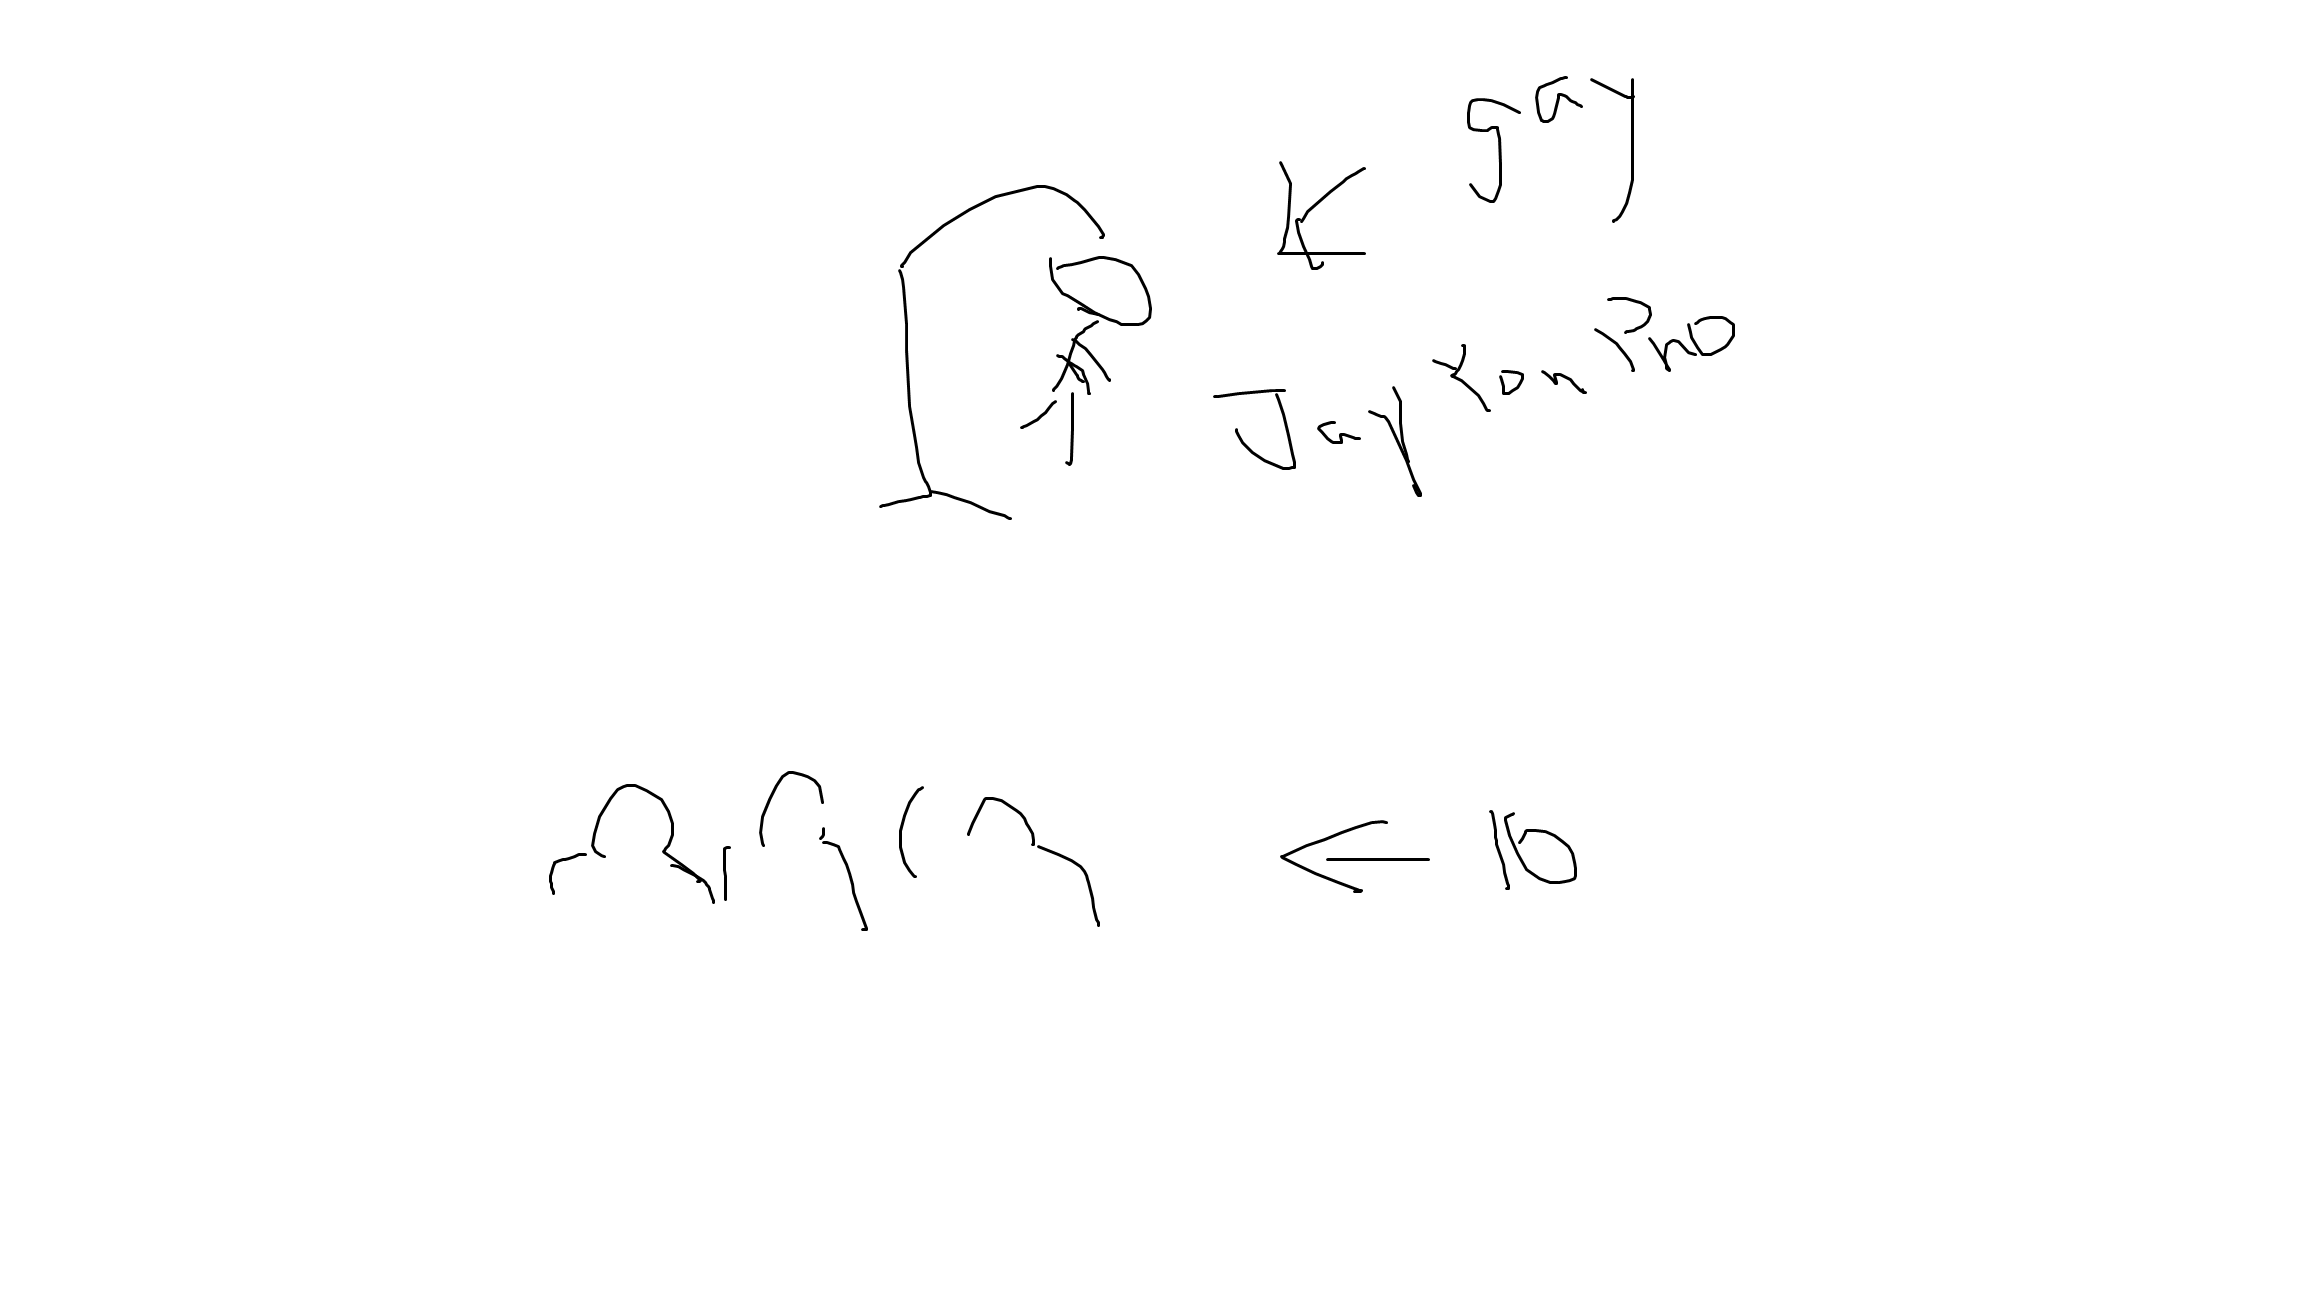 gay
K
Jay Yon Pno
16